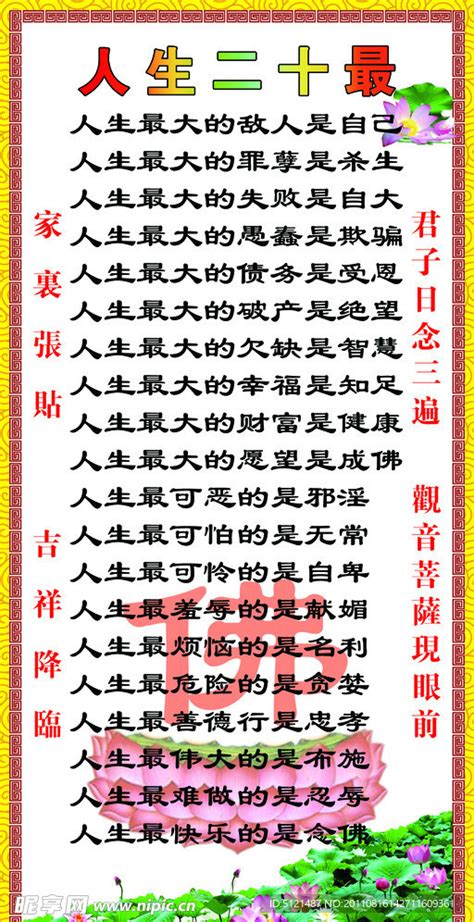 人生二十最
人生最大的敌人是自己
人生最大的罪孽是杀生
人生最大的失败是自大
人生最大的愚蠢是欺骗
人生最大的债务是受恩
人生最大的破产是绝望
人生最大的欠缺是智慧
人生最大的幸福是知足
人生最大的财富是健康
人生最大的愿望是成佛
人生最可恶的是邪淫
人生最可怕的是无常
人生最可怜的是自卑
人生最羞辱的是献媚
人生最烦恼的是名利
人生最危险的是贪婪
人生最善德行是忠孝
人生最伟大的是布施
人生最难做的是忍辱
人生最快乐的是念佛
君子日念三遍 觀音菩薩現眼前
家裏張貼 吉祥降臨
佛
昵享网 www.nipic.cn
ID:5121487 NO:20110816142711609361